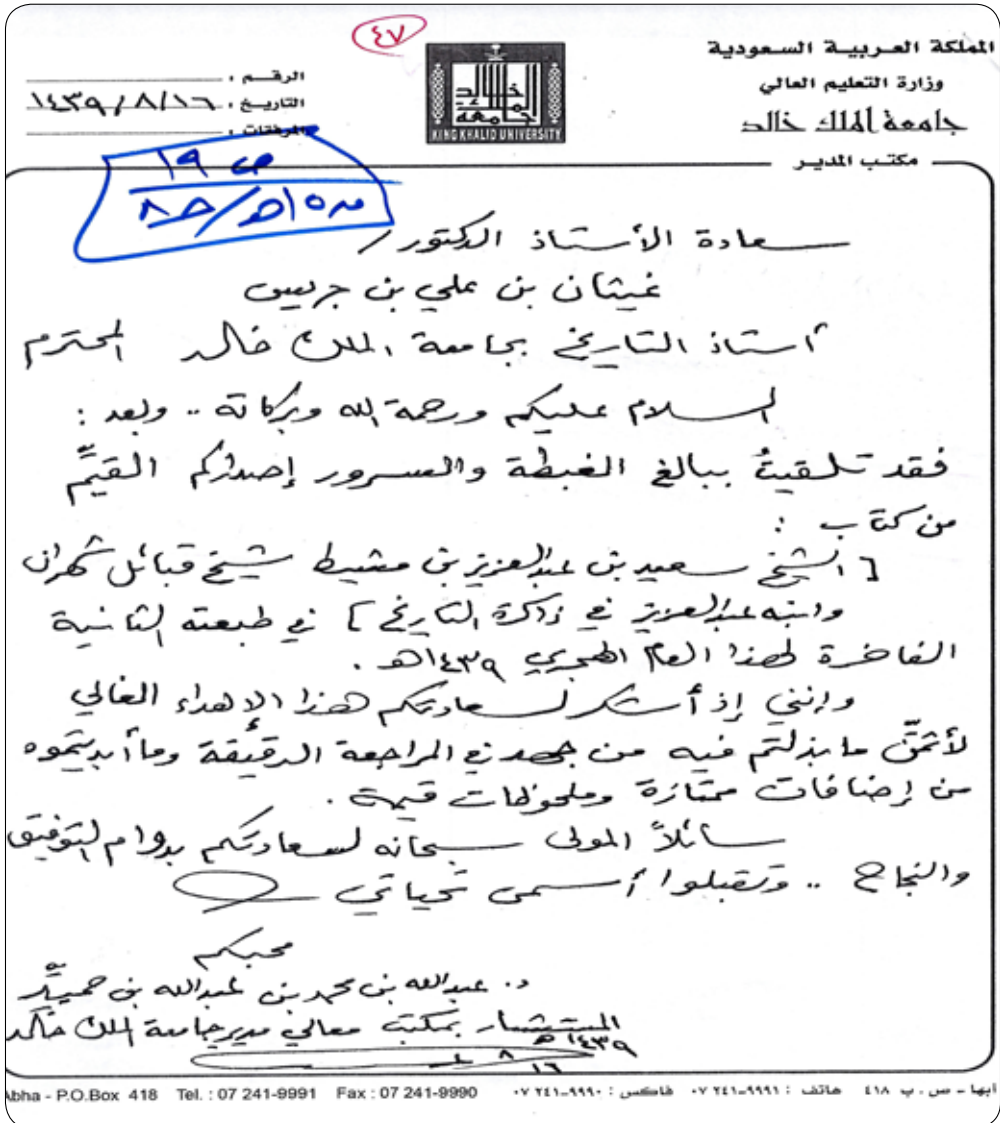 ٤٧
المملكة العربية السعودية
وزارة التعليم العالي
جامعة الملك خالد
مكتب المدير
جامعة الملك خالد
KING KHALID UNIVERSITY
الرقم :
التاريخ : ١٤٣٩/٨/١٦
المرفقات :
ص ١٩
سعادة الأستاذ الدكتور /
غيثان بن علي بن جريس
أستاذ التاريخ بجامعة الملك خالد المحترم
السلام عليكم ورحمة الله وبركاته .. وبعد :
فقد تلقيتُ ببالغ الغبطة والسرور إصداركم القيِّم
من كتاب :
[ الشيخ سعيد بن عبدالعزيز بن مشيط شيخ قبائل شهران
وابنه عبدالعزيز في ذاكرة التاريخ ] في طبعته الثانية
الفاخرة لهذا العام الهجري ١٤٣٩هـ .
وإنني إذ أشكر لسعادتكم هذا الإهداء الغالي
لأثمّن ما بذلتم فيه من جهد في المراجعة الدقيقة وما أبديتموه
من إضافات ممتازة وملحوظات قيمة .
سائلاً المولى سبحانه لسعادتكم بدوام التوفيق
والنجاح .. وتقبلوا أسمى تحياتي
محبكم
د. عبدالله بن محمد بن عبدالله بن حميّد
المستشار بمكتب معالي مدير جامعة الملك خالد
١٤٣٩هـ
٨
١٦
Abha - P.O.Box 418 Tel. : 07 241-9991 Fax : 07 241-9990
أبها - ص . ب ٤١٨ هاتف : ٩٩٩١-٢٤١ ٠٧ فاكس : ٩٩٩٠-٢٤١ ٠٧